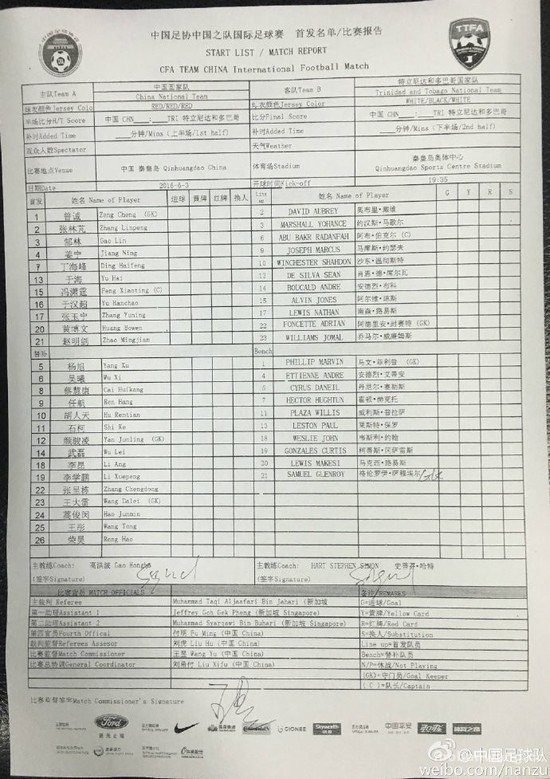 中国足协中国之队国际足球赛 首发名单/比赛报告
START LIST / MATCH REPORT
CFA TEAM CHINA International Football Match
TTFA
主队Team A 中国国家队 China National Team 客队Team B 特立尼达和多巴哥国家队 Trinidad and Tobago National Team
球衣颜色Jersey Colo RED/RED/RED 球衣颜色Jersey Color WHITE/BLACK/WHITE
半场比分H/T Score 中国 CHN ___:___ TRI 特立尼达和多巴哥 比分Final Score 中国 CHN ___:___ TRI 特立尼达和多巴哥
补时Added Time ____分钟/Mins (上半场/1st half) 补时Added Time ____分钟/Mins (下半场/2nd half)
观众人数Spectator 天气Weather
比赛地点Venue 中国 秦皇岛 Qinhuangdao China 体育场Stadium 秦皇岛奥体中心 Qinhuangdao Sports Centre Stadium
日期Date 2016-6-3 开球时间Kick-off 19:35
首发 姓名 Name of Player 进球 黄牌 红牌 换人 Line up 姓名 Name of Player G Y R S
1 曾诚 Zeng Cheng (GK) 2 DAVID AUBREY 奥布里·戴维
2 张林芃 Zhang Linpeng 3 MARSHALL YOHANCE
3 郜林 Gao Lin 6 ABU BAKR RADANFAH
4 姜宁 Jiang Ning 9 JOSEPH MARCUS
7 丁海峰 Ding Haifeng 10 WINCHESTER SHAHDON
13 于海 Yu Hai 12 DE SILVA SEAN
15 冯潇霆 Feng Xiaoting (C) 14 BOUCAUD ANDRE
16 于汉超 Yu Hanchao 15 ALVIN JONES
17 张玉宁 Zhang Yuning 17 LEWIS NATHAN
20 黄博文 Huang Bowen FONCETTE ADRIAN (GK)
21 赵明剑 Zhao Mingjian WILLIAMS JOMAL
替补 Bench
5 杨旭 Yang Xu 1 PHILLIP MARVIN 马文·菲利普 (GK)
6 吴曦 Wu Xi 4 ETTIENNE ANDRE
8 蔡慧康 Cai Huikang 5 CYRUS DANEIL
9 任航 Ren Hang 7 HECTOR HUGHTUN
10 胡人天 Hu Rentian 11 PLAZA WILLIS
11 石柯 Shi Ke 13 LESTON PAUL 莱斯特·保罗
12 颜骏凌 Yan Junling (GK) 18 WESLIE JOHN 韦斯利·约翰
14 武磊 Wu Lei 19 GONZALES CURTIS
18 李昂 Li Ang 20 LEWIS MAKESI
19 李学鹏 Li Xuepeng 21 SAMUEL GLENROY
22 张呈栋 Zhang Chengdong
23 王大雷 Wang Dalei (GK)
24 蒿俊闵 Hao Junmin
25 王彤 Wang Tong
26 荣昊 Rong Hao
主教练Coach: 高洪波 Gao Hongbo 主教练Coach: HART STEPHEN SIMON 史蒂芬·哈特
(签字Signature) (签字Signature)
比赛官员 MATCH OFFICIALS 备注/REMARKS
主裁判 Referee Muhammad Taqi Aljaafari Bin Jahari (新加坡 G=进球/Goal
第一助理Assistant 1 Jeffrey Goh Gek Pheng (新加坡 Singapore) Y=黄牌/Yellow Card
第二助理Assistant 2 Muhammad Syarzwi Bin Buhari (新加坡 Singapore) R=红牌/Red Card
第四官员Fourth Offical 付明 Fu Ming (中国 China) S=换人/Substitution
裁判监督Referees Assessor 刘虎 Liu Hu (中国 China) Line up=首发队员
比赛监督Match Commissioner 王昱 Wang Yu (中国 China) Bench=替补队员
比赛总协调General Coordinator Liu Xifu (中国 China) N/P=休战/Not Playing
(GK)=守门员/Goal Keeper
( C )=队长/Captain
比赛监督签字Match Commissioner's Signature
Ford GIONEE Skyworth 中国平安
@中国足球队
weibo.com/hanzu